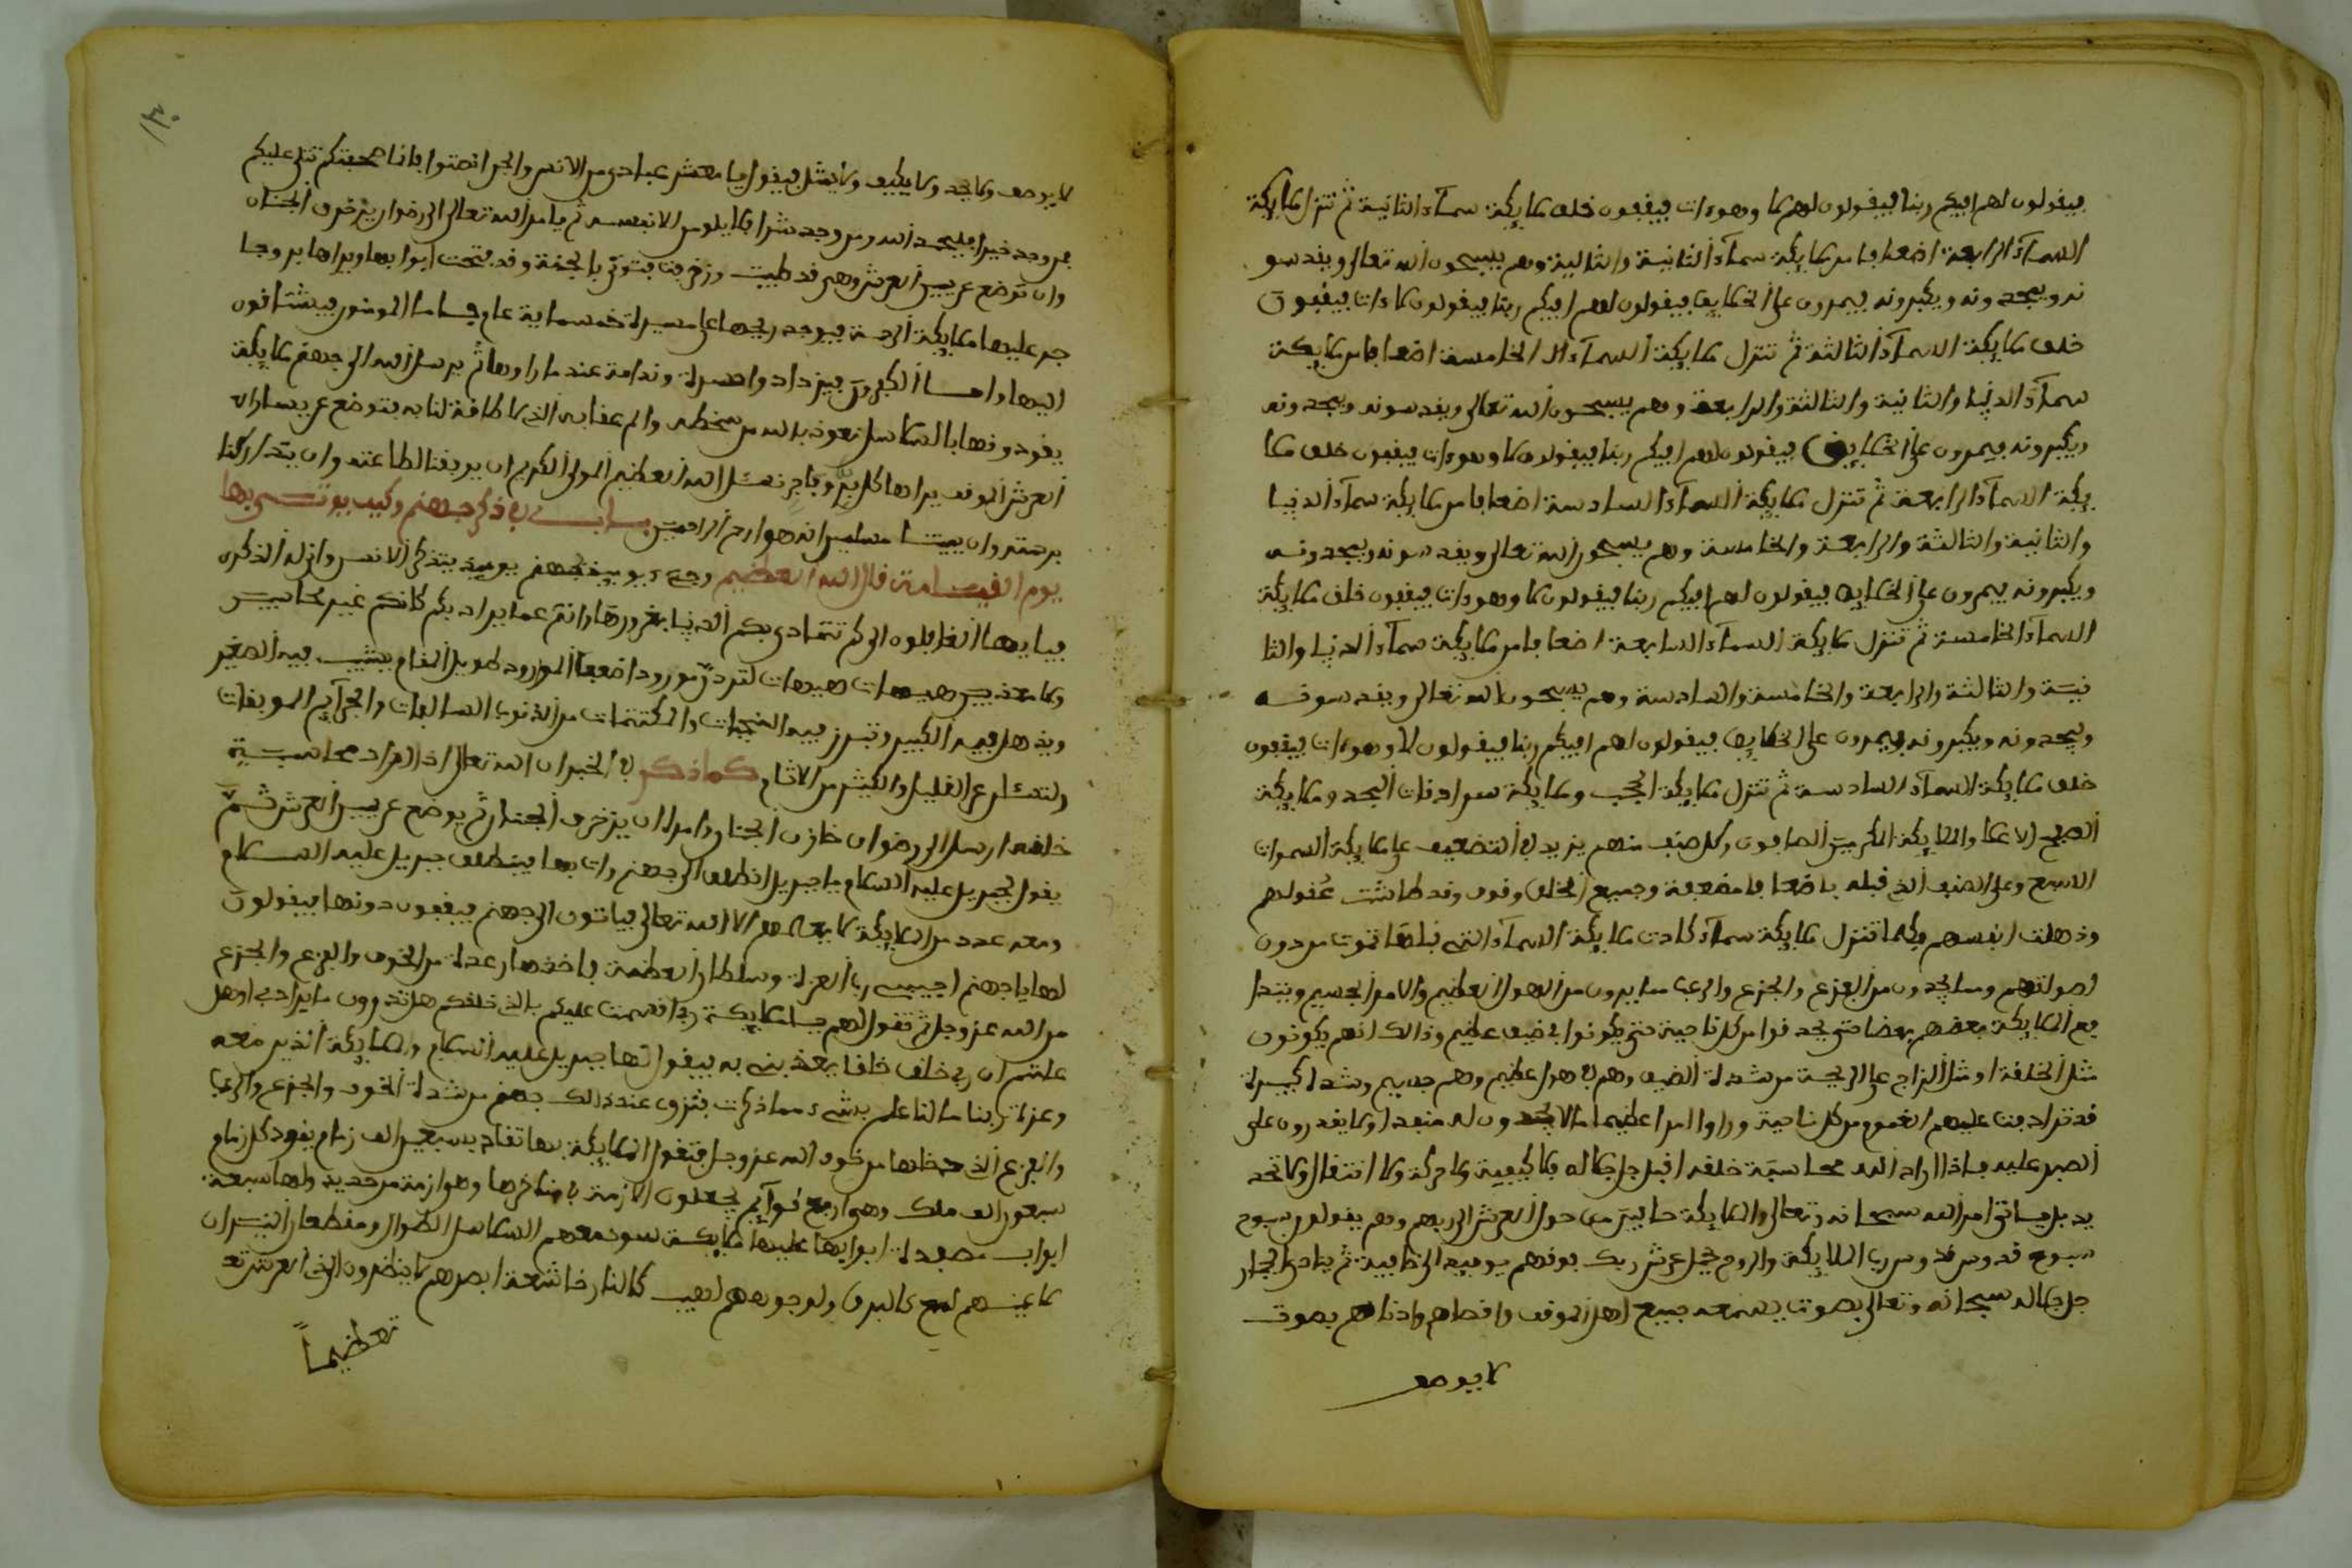 فيقولون لهم افيكم ربنا فيقولون لهم لا وهو ءات فيقفون خلف ملايكة سماء الثانية ثم تنزل ملايكة
السماء الرابعة اضعافا من ملايكة سماء الثانية والثالثة وهم يسبحون الله تعالى ويقدسو
نه ويمجدونه ويكبرونه فيمرون على الخلايق فيقولون لهم افيكم ربنا فيقولون لا وءات فيقفون
خلف ملايكة السماء الثالثة ثم تنزل ملايكة السماء الخامسة اضعافا من ملايكة
سماء الدنيا والثانية والثالثة والرابعة وهم يسبحون الله تعالى ويقدسونه ويمجدونه
ويكبرونه فيمرون على الخلايق فيقولون لهم افيكم ربنا فيقولون لا وهو ءات فيقفون خلف ملا
يكة السماء الرابعة ثم تنزل ملايكة السماء السادسة اضعافا من ملايكة سماء الدنيا
والثانية والثالثة والرابعة والخامسة وهم يسبحون الله تعالى ويقدسونه ويمجدونه
ويكبرونه فيمرون على الخلايق فيقولون لهم افيكم ربنا فيقولون لا وهو ءات فيقفون خلف ملايكة
السماء الخامسة ثم تنزل ملايكة السماء السابعة اضعافا من ملايكة سماء الدنيا والثا
نية والثالثة والرابعة والخامسة والسادسة وهم يسبحون الله تعالى ويقدسونه
ويمجدونه ويكبرونه فيمرون على الخلايق فيقولون لهم افيكم ربنا فيقولون لا وهو ءات فيقفون
خلف ملايكة السماء السادسة ثم تنزل ملايكة الحجب وملايكة سرادقات المجد وملايكة
الصفح الاعلا والملايكة المكرمين الصافون وكل صنف منهم يزيد في التضعيف على ملايكة السموات
السبع وعلى الصنف الذي قبله باضعاف مضعفة وجميع الخلق وقوف وقد طاشت عقولهم
وذهلت انفسهم فكلما تنزل ملايكة سماء كادت ملايكة السماء التي قبلها تموت من دون
اصواتهم وما يجدون من الفزع والجزع والرعب مما يرون من الهول العظيم والامر الجسيم ويتدا
فع الملايكة بعضهم بعضا حتى يحدقوا من كل ناحية حتى يكونوا في ضيق عظيم وذالك انهم يكونون
مثل الحلقة او مثل الزاج على الرمحة من شدة الضيق وهم في هول عظيم وهم جسيم وشدة كبيرة
قد ترادفت عليهم الغموم من كل ناحية وراوا امرا عظيما لا يجدون له منفدا ولا يقدرون على
الصبر عليه فاذا اراد الله محاسبة خلقه اقبل جل جلاله بلا كيفية ولا حركة ولا انتقال ولا تحد
يد بل ياتي امر الله سبحانه وتعالى والملايكة حافين من حول العرش الى ربهم وهم يقولون سبوح
سبوح قدوس قدوس رب الملايكة والروح يحمل عرش ربك فوقهم يوميذ الى ثمانية ثم ينادي الجبار
جل جلاله سبحانه وتعالى بصوت يسمعه جميع اهل الموقف واقصاهم وادناهم بصوت
لا يوصف
لا يوصف ولا يحد ولا يكيف ولا يمثل فيقول يا معشر عبادي من الانس والجن انصتوا فانما صحفكم تتلى عليكم
فمن وجد خيرا فليحمد الله ومن وجد شرا فلا يلومن الا نفسه ثم يامر الله تعالى الى رضوان يزخرف الجنان
وان توضع عن يمين العرش وهي قد طيبت وزخرفت فتوتى بالجنة وقد فتحت ابوابها ويراها بروجا
جر عليها ملايكة الرحمة فيوجد ريحها على مسيرة خمسماية عام فاما المومنون فيشتاقون
اليها واما الكفرون فيزدادوا حسرة وندامة عند ما راوها ثم يرسل الله الى جهنم ملايكة
يقودونها بالسلاسل نعوذ بالله من سخطه والم عقابه الذي لا طاقة لنا به فتوضع عن يسار ال
العرش الموقف يراها كل بر وفاجر نسئل الله العظيم المولى الكريم ان يوفقنا لطاعته وان يتداركنا
برحمته وان يميتنا مسلمين انه هو ارحم الراحمين باب في ذكر جهنم وكيف يوتى بها
يوم القيامة قال الله العظيم وجيء يوميذ بجهنم يوميذ يتذكر الانسن وانى له الذكرى
فيا يها الغافلون الى كم تتمادى بكم الدنيا بغرورها وانتم عما يراد بكم كانكم غير محاسبين
ولا معذبين هيهات هيهات لتردن مورودا ضعفا المورود طويل المقام يشيب فيه الصغير
ويذهل فيه الكبير وتبرز فيه المخبات والمكتتمات من الذنوب السالفات والجرآيم الموبقات
ولتسئلن عن القليل والكثير من الاثام كما ذكر في الخبر ان الله تعالى اذا اراد محاسبة
خلقه ارسل الى رضوان خازن الجنان وامره ان يزخرف الجنان ثم يوضع عن يمين العرش ثم
يقول لجبريل عليه السلام يا جبريل انطلق الى جهنم وات بها فينطلق جبريل عليه السلام
ومعه عدد من الملايكة لا يعلمهم الا الله تعالى فياتون الى جهنم فيقفون دونها فيقولون
لها يا جهنم اجيبي رب العزة وسلطان العظمة فياخذها رعدة من الخوف والفزع والجزع
من الله عز وجل ثم تقول لهم يا ملايكة ربي اقسمت عليكم بالذي خلقكم هل تدرون ما يراد بي او هل
علمتم ان ربي خلق خلقا يعذبني به فيقول لها جبريل عليه السلام والملايكة الذين معه
وعزة ربنا ما لنا علم بشيء مما ذكرت فتزوى عند ذالك جهنم من شدة الخوف والجزع والرعب
والفزع الذي دخلها من خوف الله عز وجل فتقول الملايكة بها تقاد بسبعين الف زمام يقود كل زمام
سبعون الف ملك وهي اربع قوآيم يجعلون الازمة في مناخرها وهو ازمة من حديد ولها سبعة
ابواب مصفدة ابوابها عليها ملايكة سود معهم السلاسل الطوال ومقطعات النيران
لاعينهم لمع كالبرق ولوجوههم لهيب كالنار خاشعة ابصارهم لا ينظرون الى العرش تع
تعظيماً